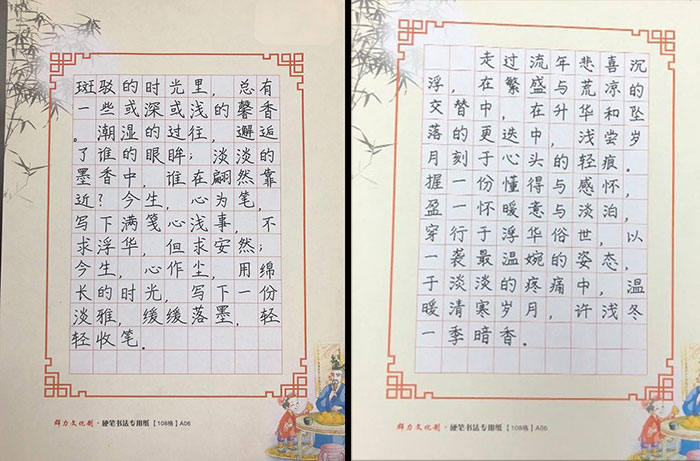 斑驳的时光里，总有
一些或深或浅的馨香
。潮湿的过往，邂逅
了谁的眼眸；淡淡的
墨香中，谁在翩然靠
近？今生，心为笔，
写下满笺心浅事，不
求浮华，但求安然；
今生，心作尘，用绵
长的时光，写下一份
淡雅，缓缓落墨，轻
轻收笔。
群力文化制·硬笔书法专用纸【108格】A06
走过流年悲喜沉
浮，在繁盛与荒凉的
交替中，在升华和坠
落的更迭中，浅尝岁
月刻于心头的轻痕。
握一份懂得与感怀，
盈一怀暖意与淡泊，
穿行于浮华俗世，以
一袭最温婉的姿态，
于淡淡的疼痛中，温
暖清寒岁月，许浅冬
一季暗香。
群力文化制·硬笔书法专用纸【108格】A06